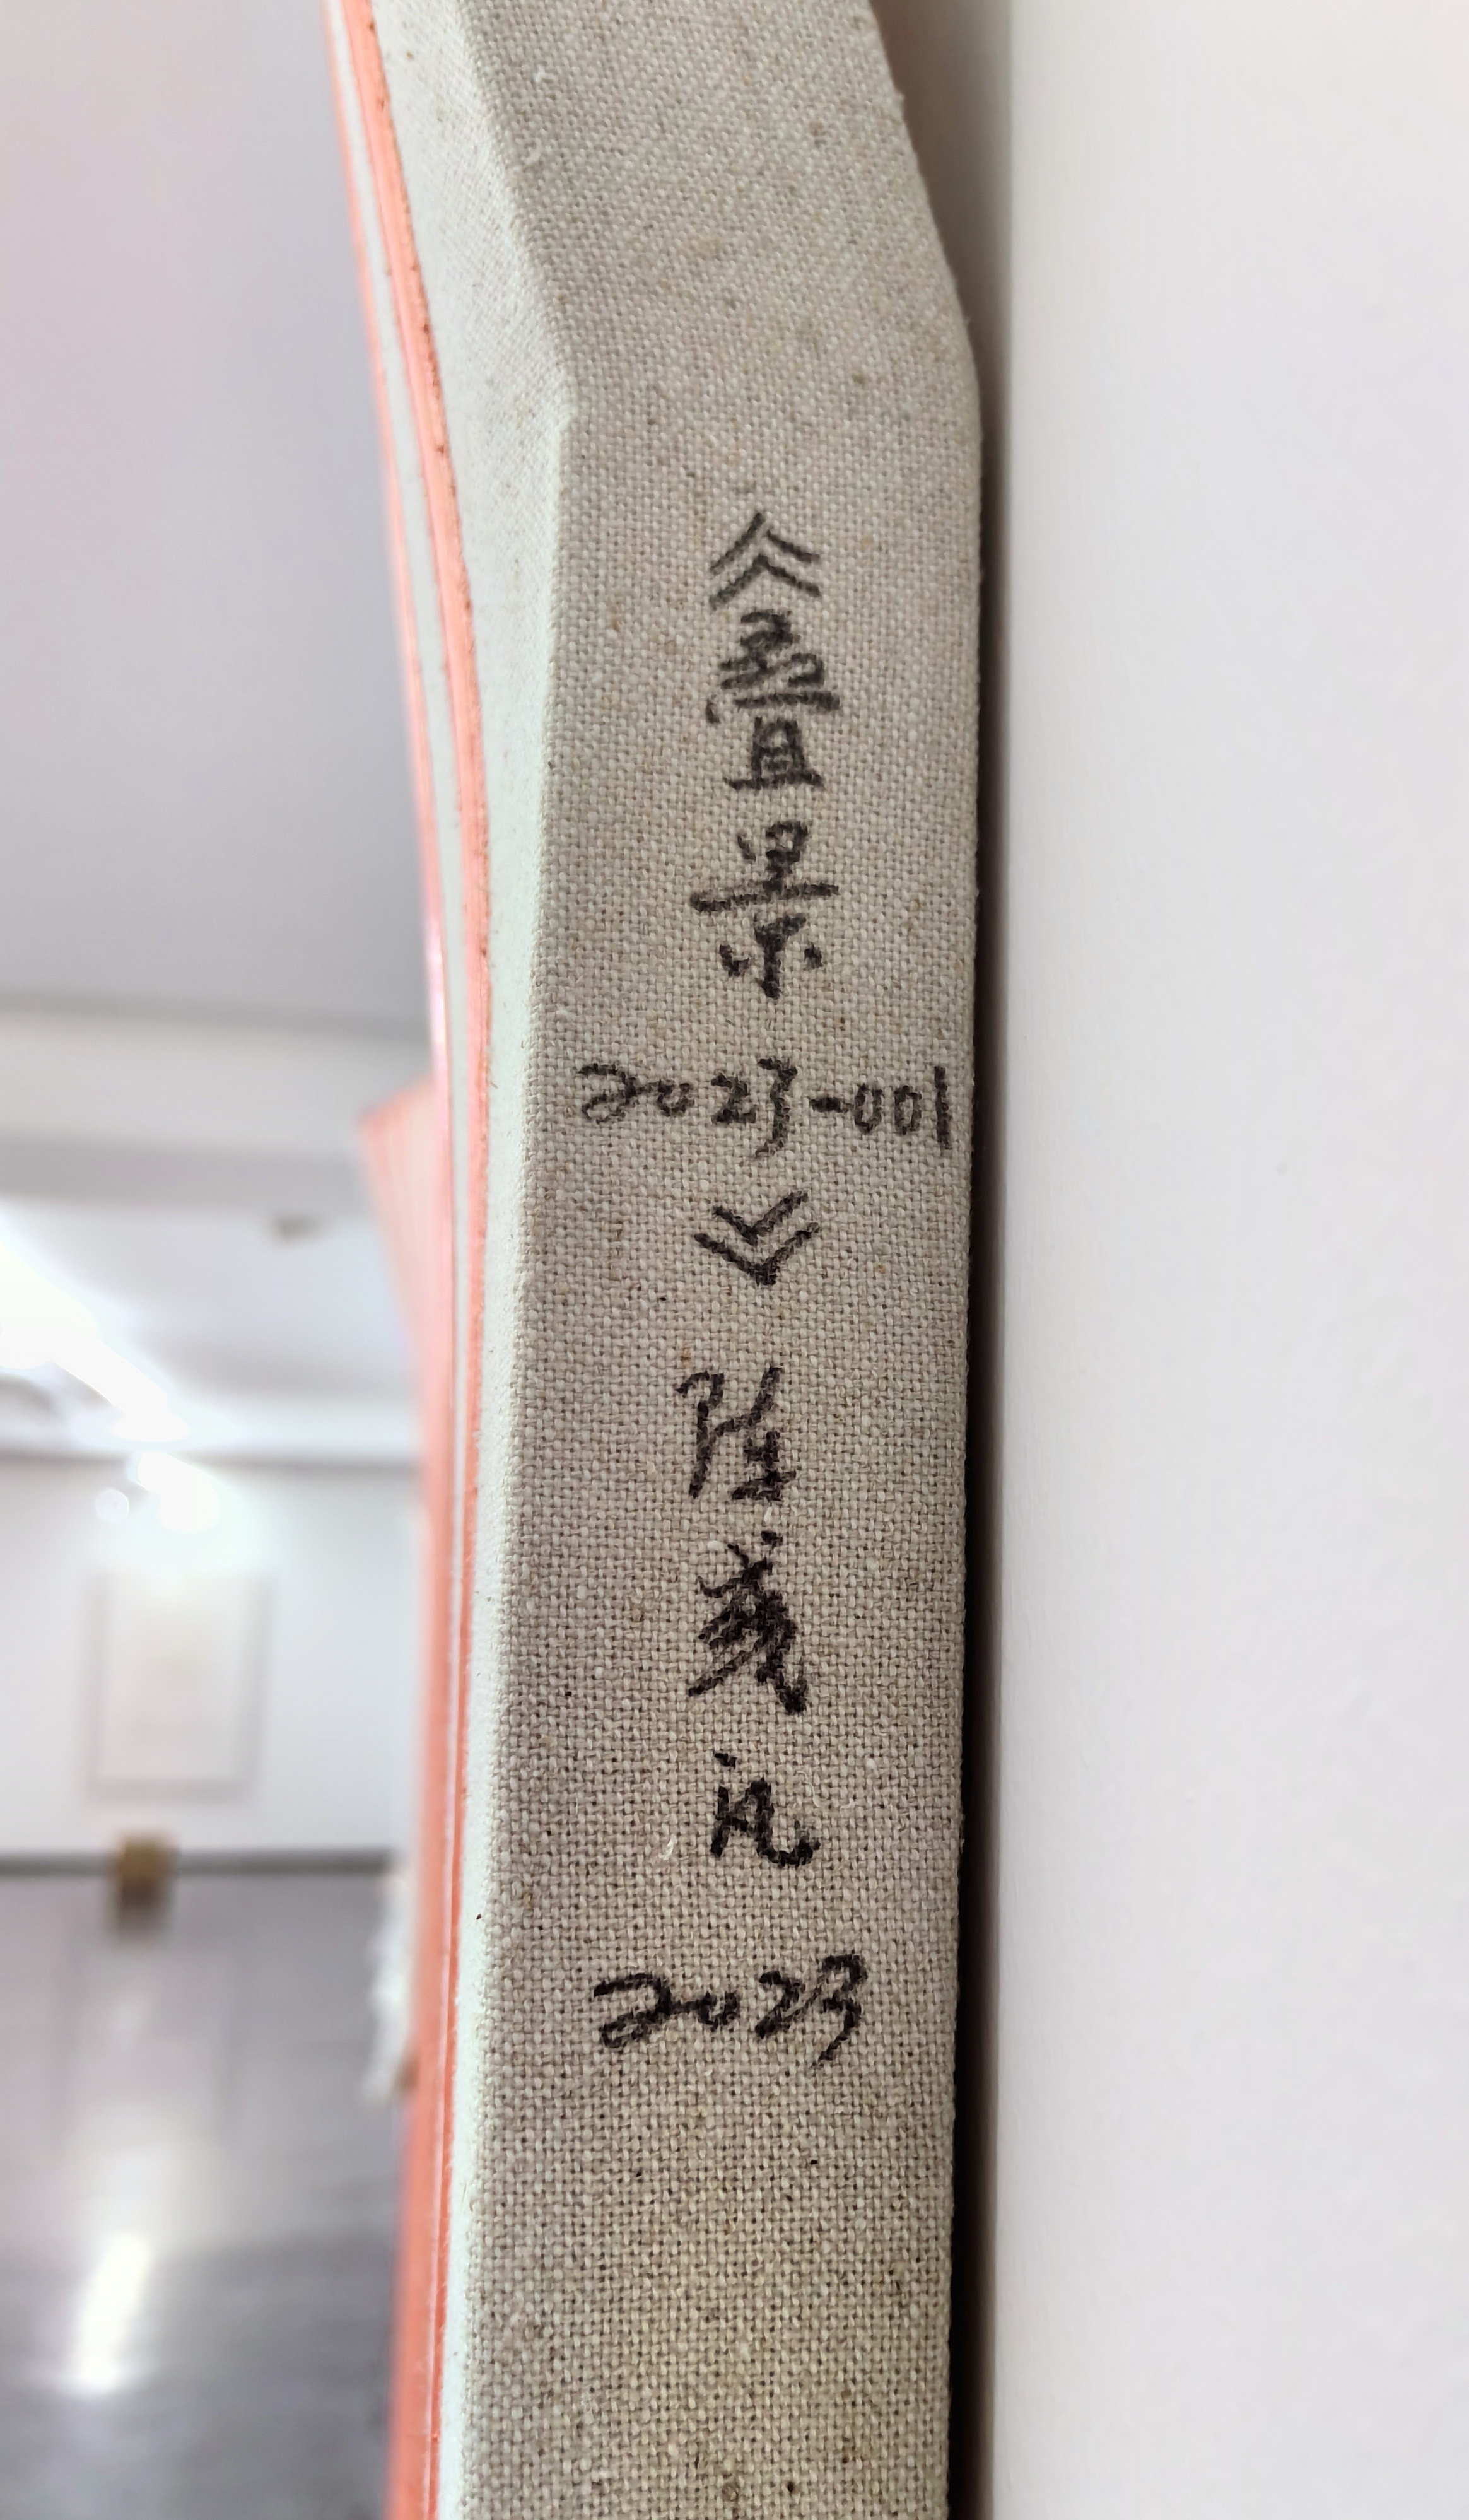 《叠
景
2023-001
》
陈
彧
凡
2023